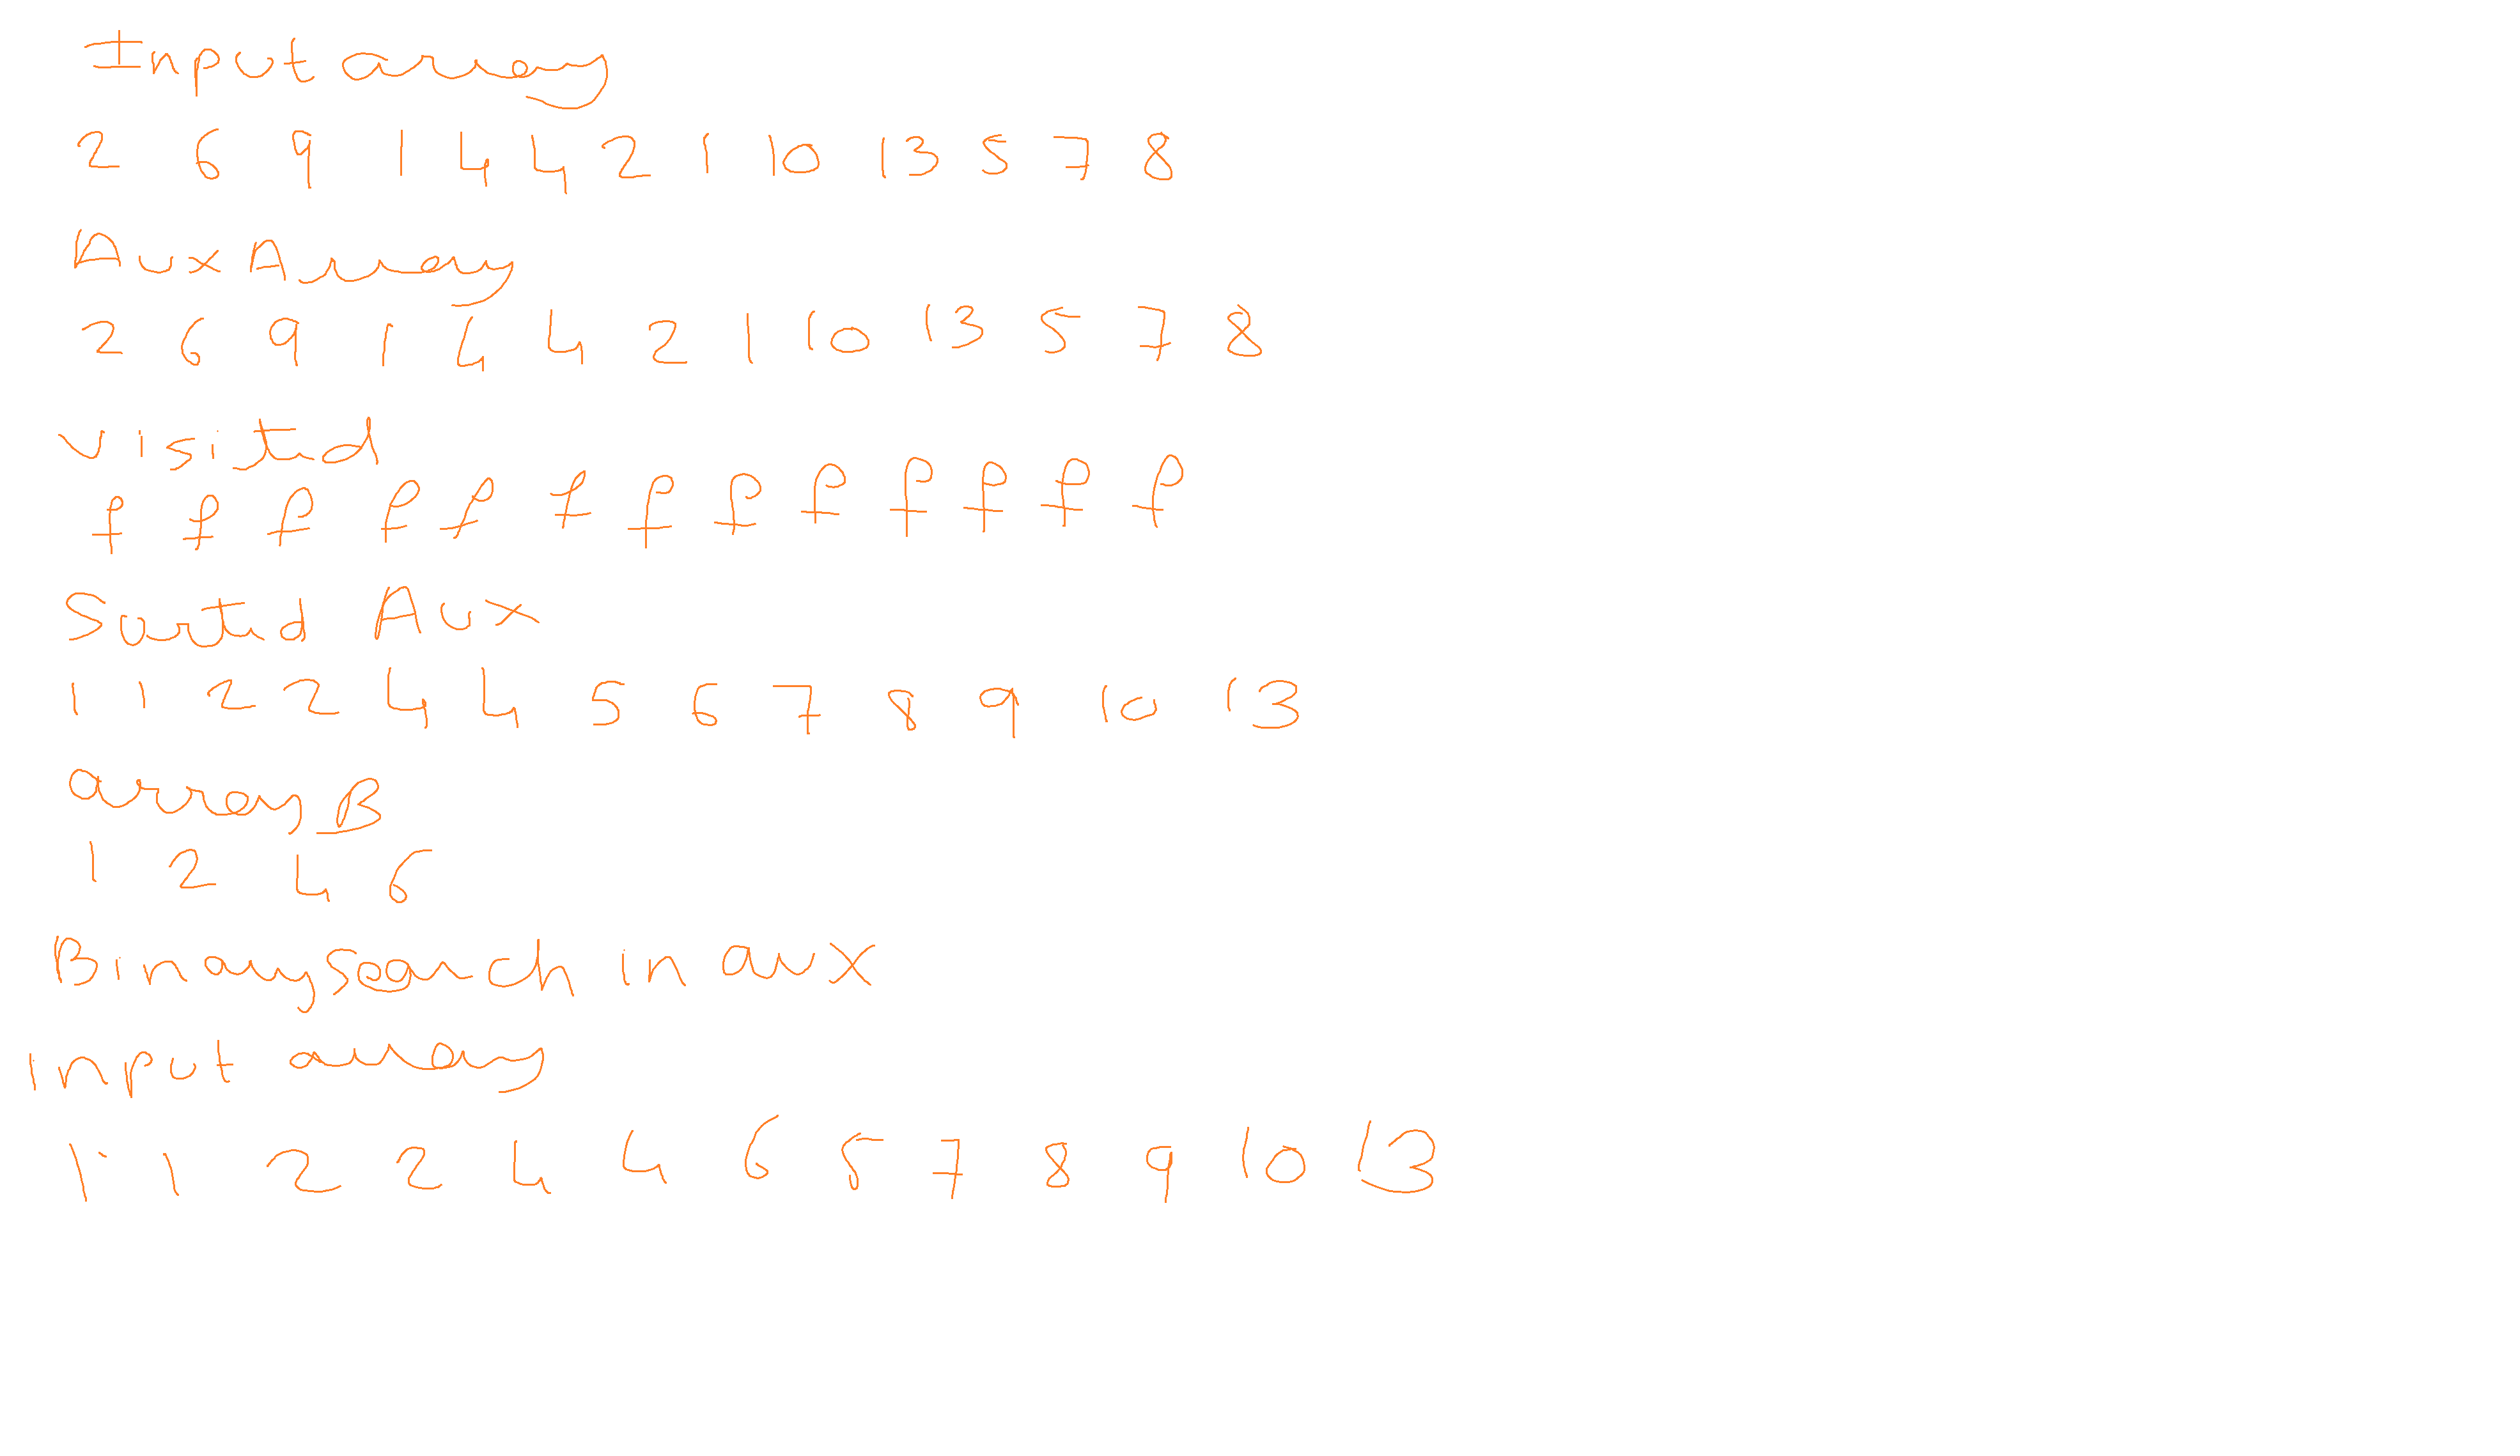 Input array
2 6 9 1 4 4 2 1 10 13 5 7 8
Aux Array
2 6 9 1 4 4 2 1 10 13 5 7 8
Visited
f f f f f f f f f f f f f
Sorted Aux
1 1 2 2 4 4 5 6 7 8 9 10 13
array B
1 2 4 6
Binary search in aux
input array
1 1 2 2 4 4 6 5 7 8 9 10 13